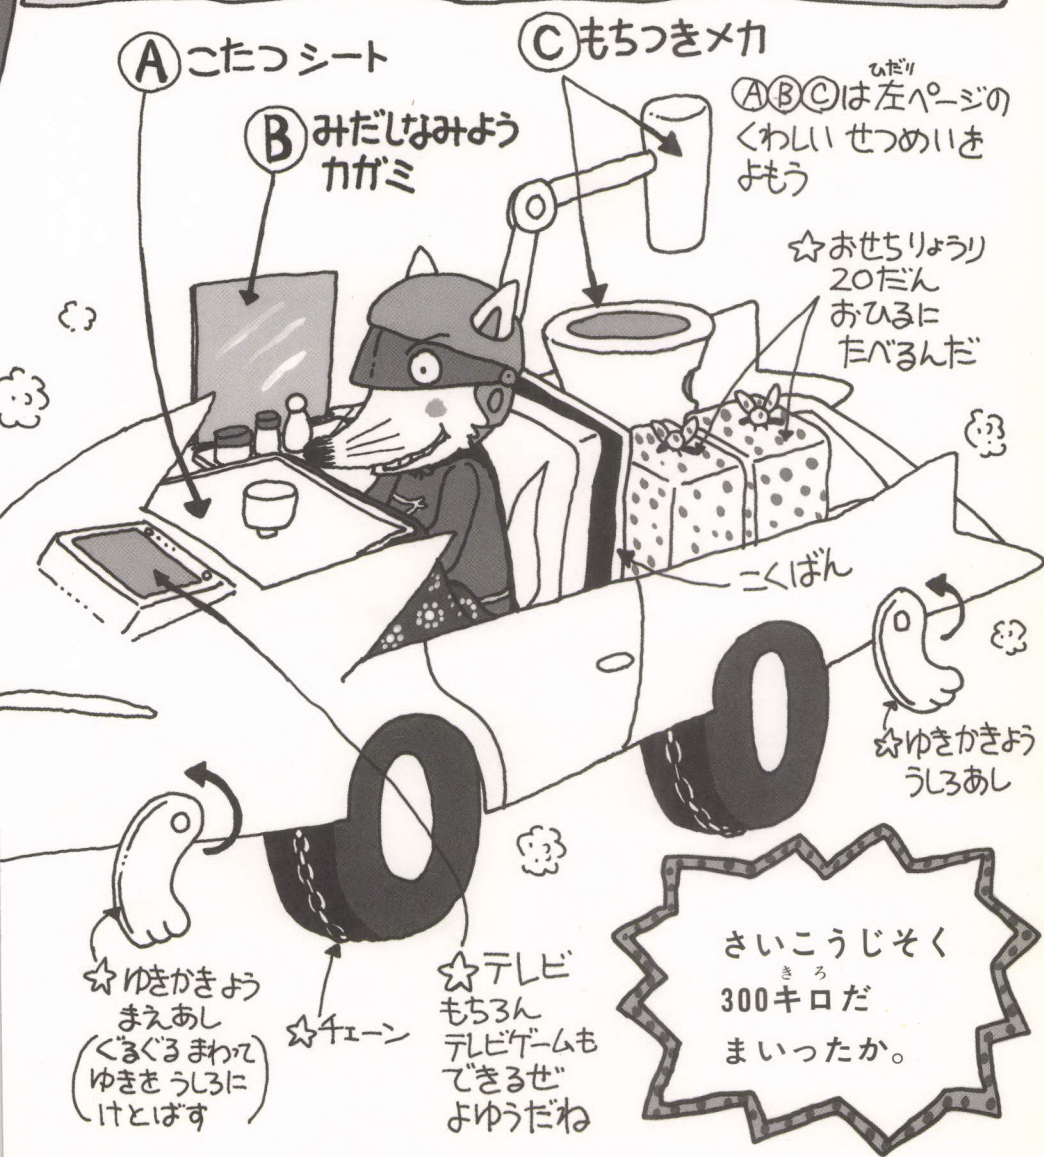 Ⓐこたつ シート
Ⓑみだしなみよう
カガミ
Ⓒもちつきメカ
ⒶⒷⒸは左ページの
ひだり
くわしい せつめいを
よもう
☆おせちりょうり
20だん
おひるに
たべるんだ
こくばん
☆ゆきかきよう
うしろあし
☆ゆきかきよう
まえあし
(ぐるぐる まわって
ゆきを うしろに
けとばす)
☆チェーン
☆テレビ
もちろん
テレビゲームも
できるぜ
よゆうだね
さいこうじそく
300キロだ
きろ
まいったか。